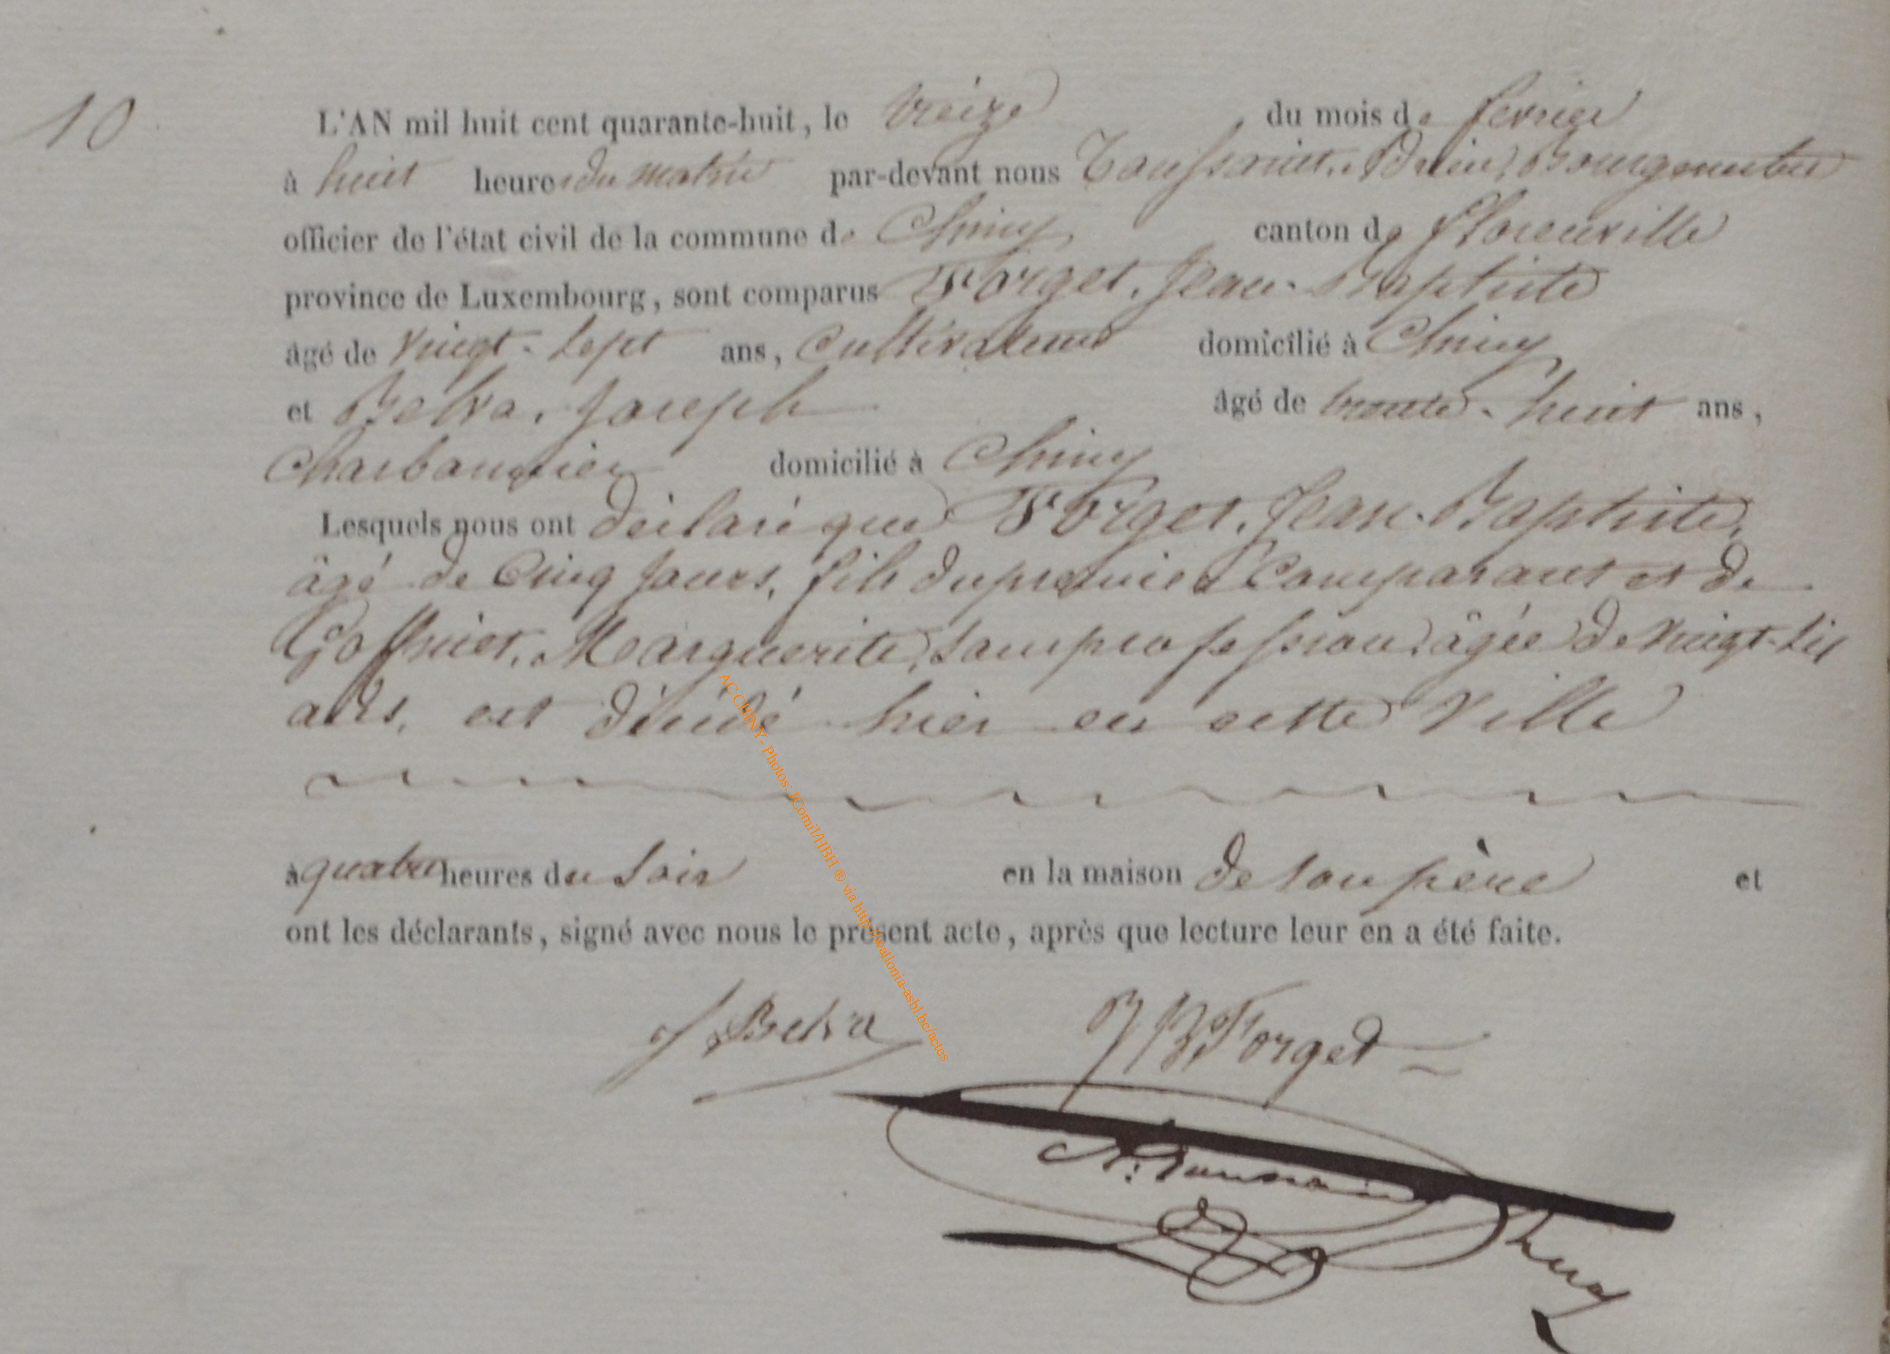 10
L'AN mil huit cent quarante-huit, le treize du mois de fevrier
à huit heures du matin par-devant nous Toussaint, Bourgmestre
officier de l'état civil de la commune de Chiny canton de Florenville
province de Luxembourg, sont comparus Forget, Jean-Baptiste
âgé de vingt-sept ans, Cultivateur domicilié à Chiny
et Belva, Joseph âgé de trente-huit ans,
Charbonnier domicilié à Chiny
Lesquels nous ont déclaré que Forget, Jean-Baptiste,
âgé de Cinq jours, fils du premier Comparant et de
Goffinet, Marguerite, sans profession, âgée de vingt-six
ans, est décédé hier en cette Ville
à quatre heures du soir en la maison de son père et
ont les déclarants, signé avec nous le présent acte, après que lecture leur en a été faite.
J Belva JB Forget
Toussaint
AC CHINY- Photos JCornil/HBH ® via http://wallonia-asbl.be/actes